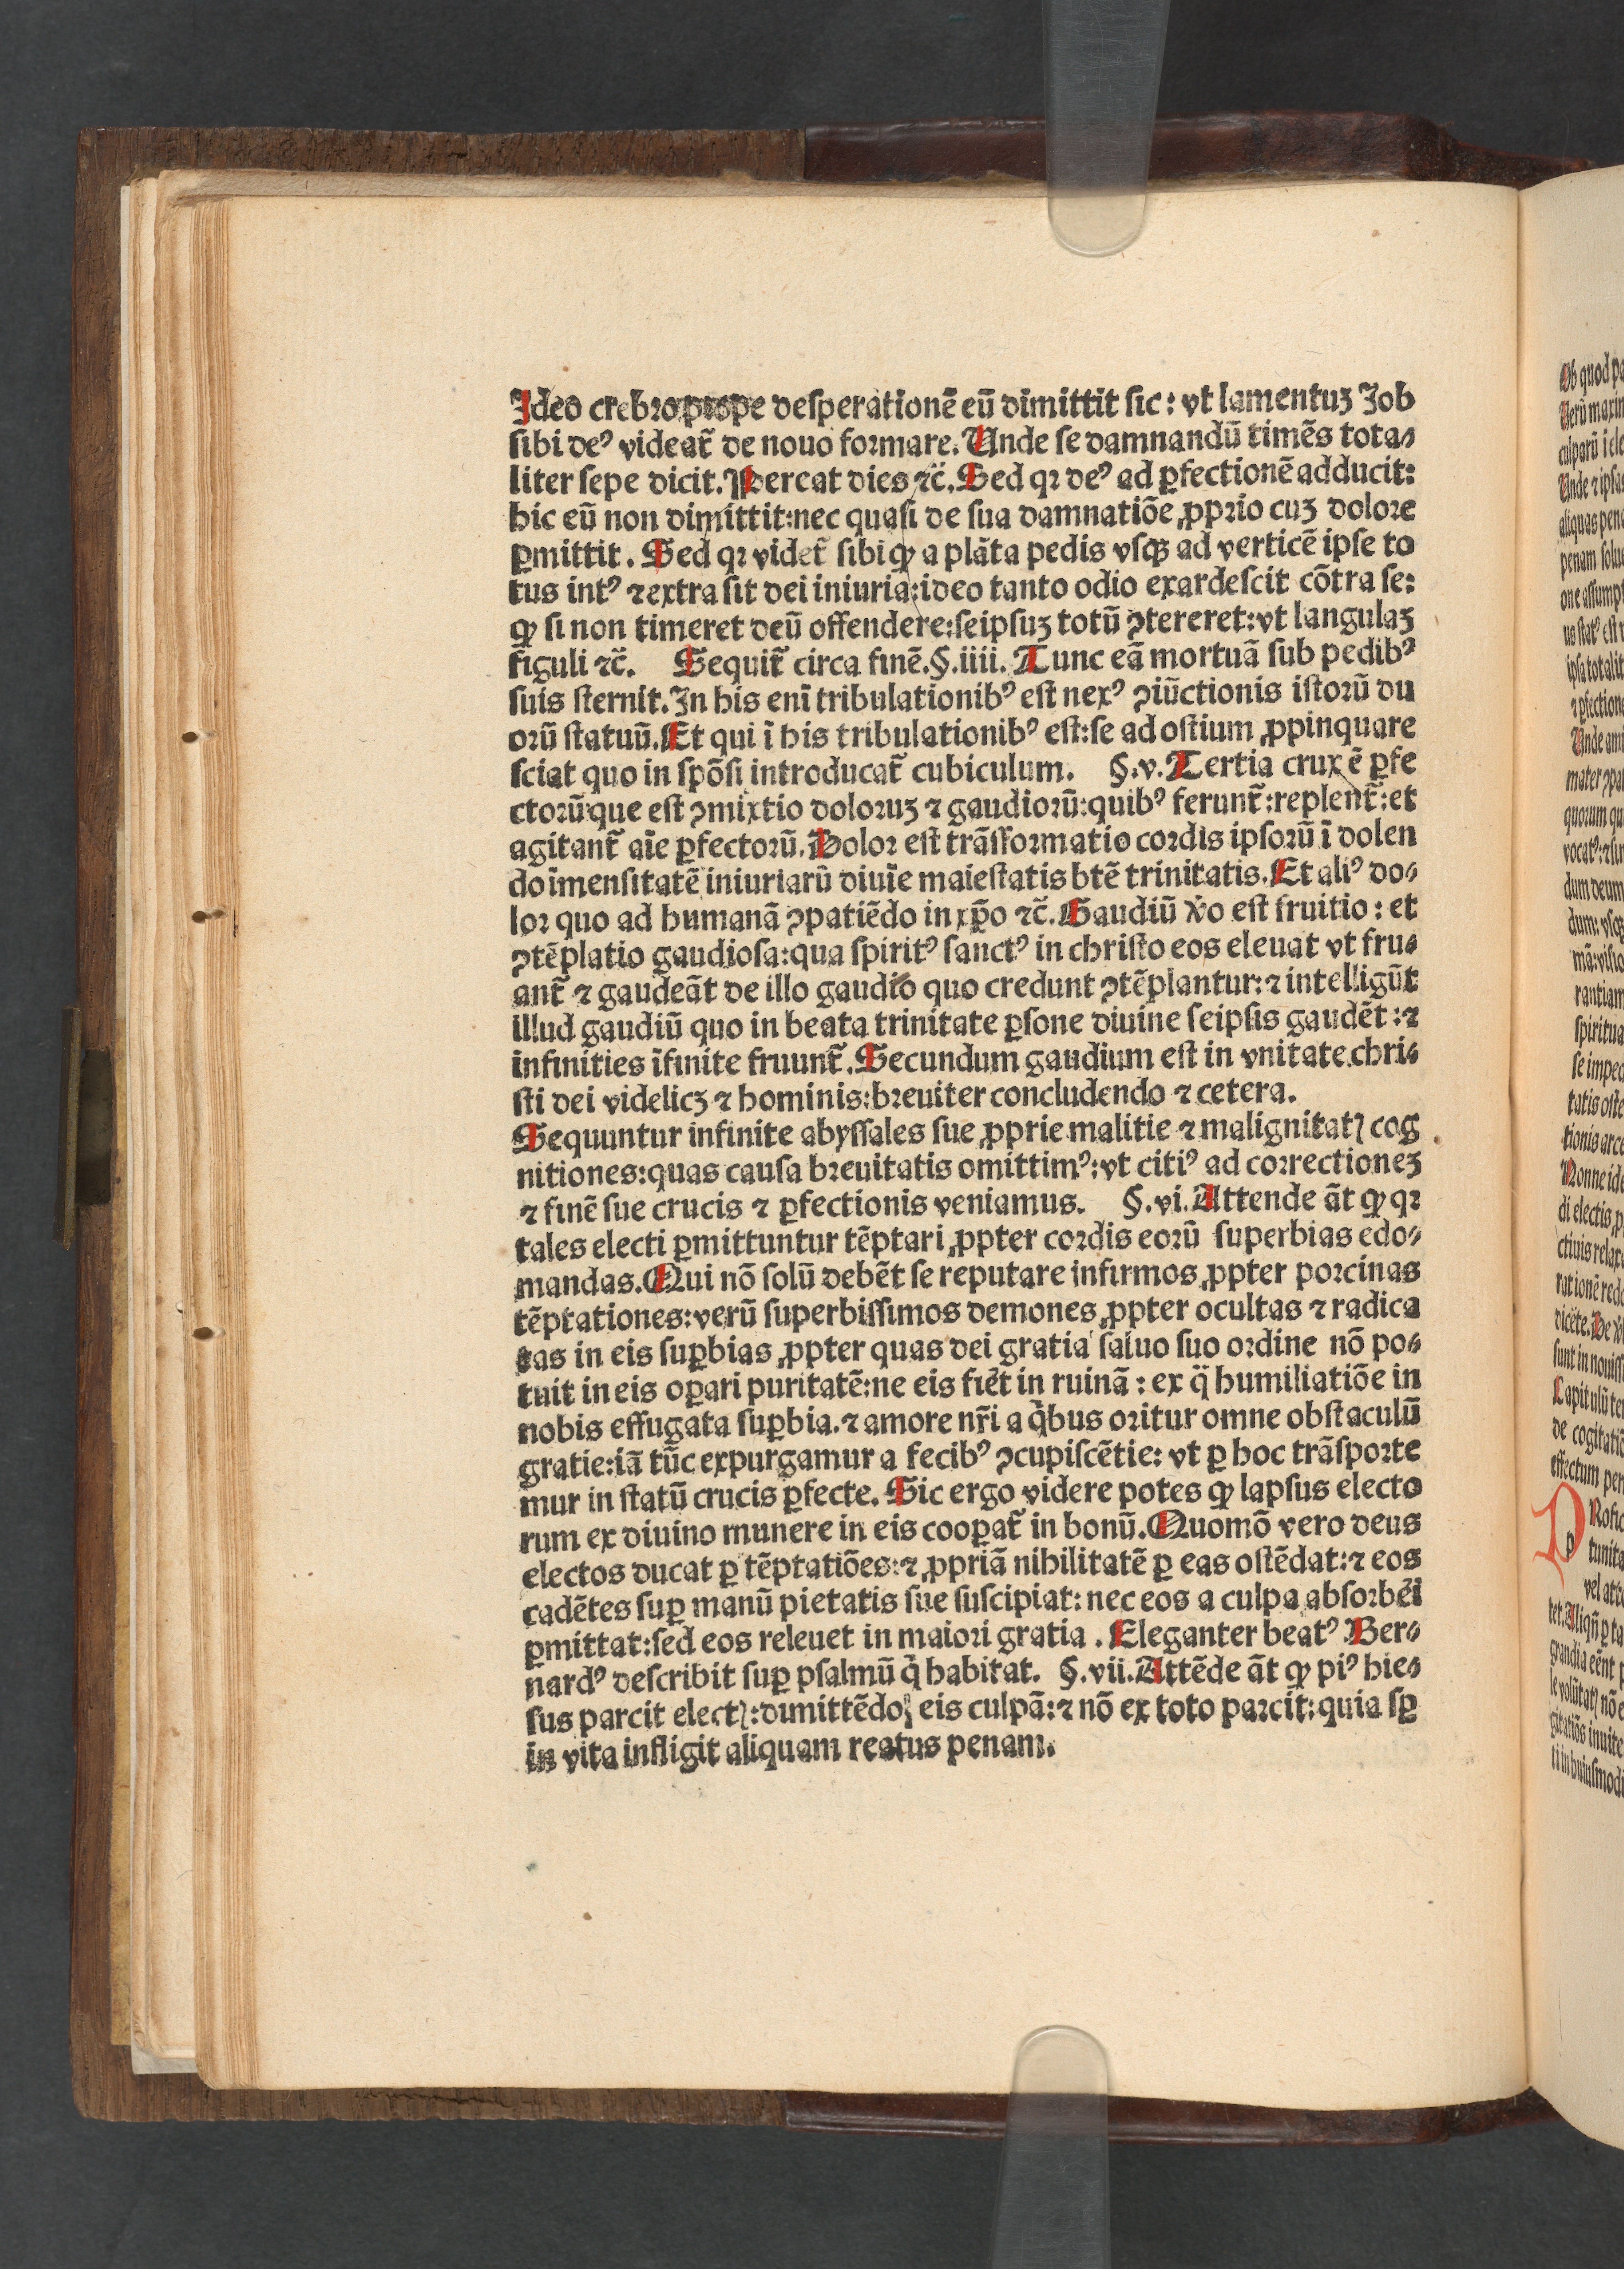 Ideo crebro prope desperationē eū dimittit sic: vt lamentuʒ Job
sibi deꝰ videat̄ de nouo formare. Unde se damnandū timēs tota⸗
liter sepe dicit. Pereat dies ⁊c̄. Sed qꝛ deꝰ ad ꝑfectionē adducit:
hic eū non dimittit: nec quasi de sua damnatiōe ꝓprio cuʒ dolore
ꝑmittit. Sed qꝛ videt̄ sibi ꝙ a plāta pedis vsqꝫ ad verticē ipse to
tus intꝰ ⁊ extra sit dei iniuria: ideo tanto odio exardescit cōtra se:
ꝙ si non timeret deū offendere: seipsuʒ totū ꝯtereret: vt langulaʒ
figuli ⁊c̄. Sequit̄ circa finē. §. iiii. Tunc eā mortuā sub pedibꝰ
suis sternit. In his enī tribulationibꝰ est nexꝰ ꝯiūctionis istorū du
orū statuū. Et qui ī his tribulationibꝰ est: se ad ostium ꝓpinquare
sciat quo in spōsi introducat̄ cubiculum. §. v. Tertia crux ē ꝑfe
ctorū que est ꝯmixtio doloruʒ ⁊ gaudiorū: quibꝰ ferunt̄: replent̄: et
agitant̄ aīe ꝑfectorū. Dolor est trāsformatio cordis ipsorū ī dolen
do īmensitatē iniuriarū diuīe maiestatis btē trinitatis. Et aliꝰ do⸗
lor quo ad humanā ꝯpatiēdo in xp̄o ⁊c̄. Gaudiū v̄o est fruitio: et
ꝯtēplatio gaudiosa: qua spiritꝰ sanctꝰ in christo eos eleuat vt fru⸗
ant̄ ⁊ gaudeāt de illo gaudio quo credunt ꝯtēplantur: ⁊ intelligūt
illud gaudiū quo in beata trinitate ꝑsone diuine seipsis gaudēt: ⁊
infinities īfinite fruunt̄. Secundum gaudium est in vnitate chri⸗
sti dei videlicʒ ⁊ hominis: breuiter concludendo ⁊ cetera.
Sequuntur infinite abyssales sue ꝓprie malitie ⁊ malignitatꝭ cog
nitiones: quas causa breuitatis omittimꝰ: vt citiꝰ ad correctioneʒ
⁊ finē sue crucis ⁊ ꝑfectionis veniamus. §. vi. Attende āt ꝙ qꝛ
tales electi ꝑmittuntur tēptari ꝓpter cordis eorū superbias edo⸗
mandas. Qui nō solū debēt se reputare infirmos ꝓpter porcinas
tēptationes: verū superbissimos demones ꝓpter ocultas ⁊ radica
tas in eis suꝑbias ꝓpter quas dei gratia saluo suo ordine nō po⸗
tuit in eis oꝑari puritatē: ne eis fiēt in ruinā: ex q̄ humiliatiōe in
nobis effugata suꝑbia. ⁊ amore nr̄i a q̇bus oritur omne obstaculū
gratie: iā tūc expurgamur a fecibꝰ ꝯcupiscētie: vt ꝑ hoc trāsporte
mur in statū crucis ꝑfecte. Sic ergo videre potes ꝙ lapsus electo
rum ex diuino munere in eis cooꝑat̄ in bonū. Quomō vero deus
electos ducat ꝑ tēptatiōes: ⁊ ꝓpriā nihilitatē ꝑ eas ostēdat: ⁊ eos
cadētes suꝑ manū pietatis sue suscipiat: nec eos a culpa absorbēi
ꝑmittat: sed eos releuet in maiori gratia. Eleganter beatꝰ Ber⸗
nardꝰ describit suꝑ psalmū q̇ habitat. §. vii. Attēde āt ꝙ piꝰ hie⸗
sus parcit electꝭ: dimittēdo eis culpā: ⁊ nō ex toto parcit: quia sꝑ
in vita infligit aliquam reatus penam.